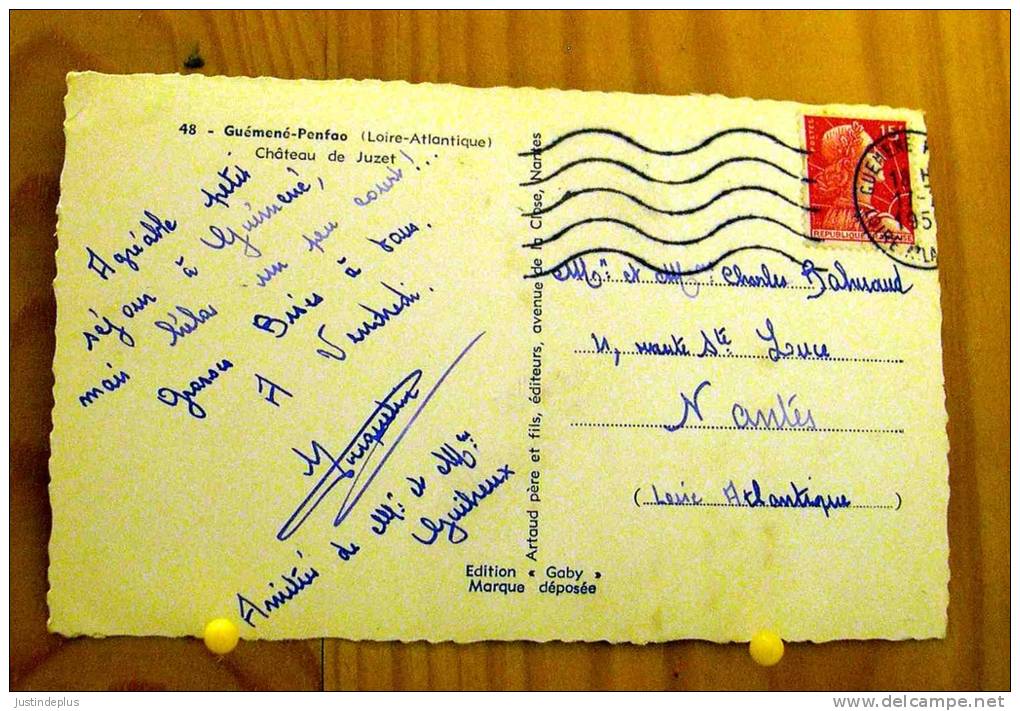 48 - Guémené-Penfao (Loire-Atlantique)
Château de Juzet
Agréable petit
séjour à Guémené,
mais hélas un peu court!...
Grosses Bises à tous.
A Vendredi.
Amitiés de Mr. et Mme.
Artaud père et fils, éditeurs, avenue de la Close, Nantes
Edition « Gaby »
Marque déposée
POSTES
15F
REPUBLIQUE FRANÇAISE
GUEMENE P
195
LOIRE ATLA
Mr. et Mme Charles
11, route Ste Luce
Nantes
(Loire Atlantique)
justindeplus
www.delcampe.net